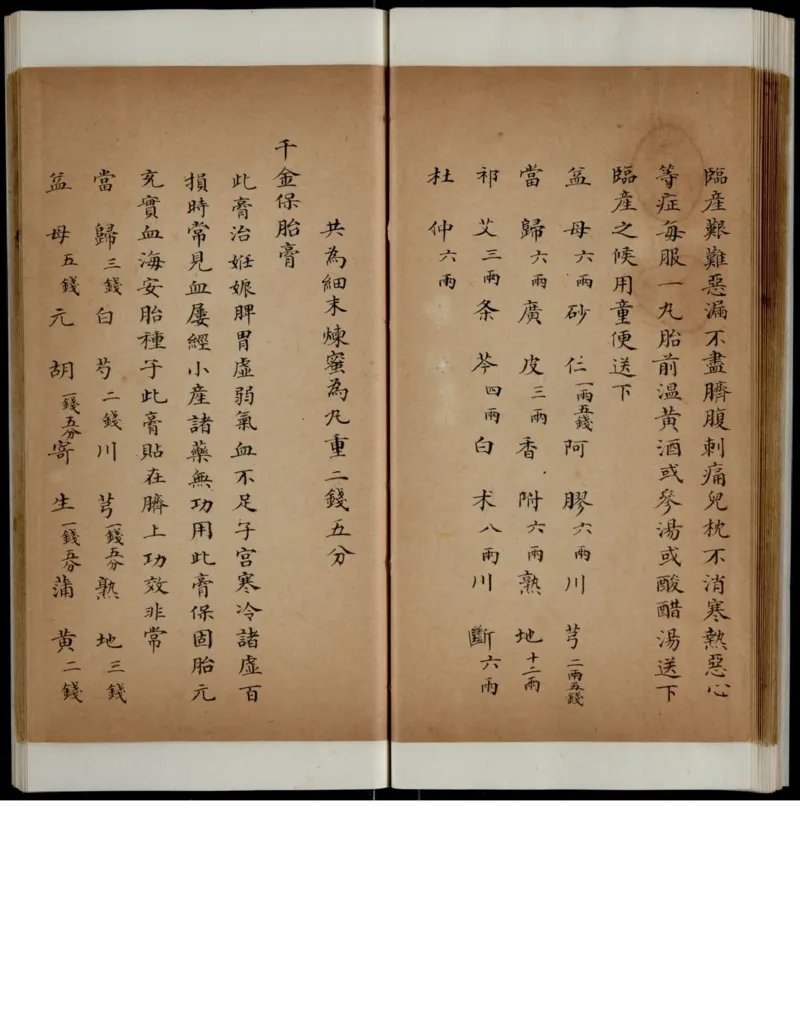 臨產艱難惡漏不盡臍腹刺痛兒枕不消寒熱惡心
等症每服一丸胎前溫黃酒或參湯或酸醋湯送下
臨產之候用童便送下
益母六兩砂仁一兩五錢阿膠六兩川芎二兩五錢
當歸六兩廣皮三兩香附六兩熟地十二兩
祁艾三兩条芩四兩白朮八兩川斷六兩
杜仲六兩
共為細末煉蜜為丸重二錢五分
千金保胎膏
此膏治姙娠脾胃虛弱氣血不足子宮寒冷諸虛百
損時常見血屢經小產諸藥無功用此膏保固胎元
充實血海安胎種子此膏貼在臍上功效非常
當歸三錢白芍二錢川芎一錢五分熟地三錢
益母五錢元胡一錢五分寄生一錢五分蒲黃二錢